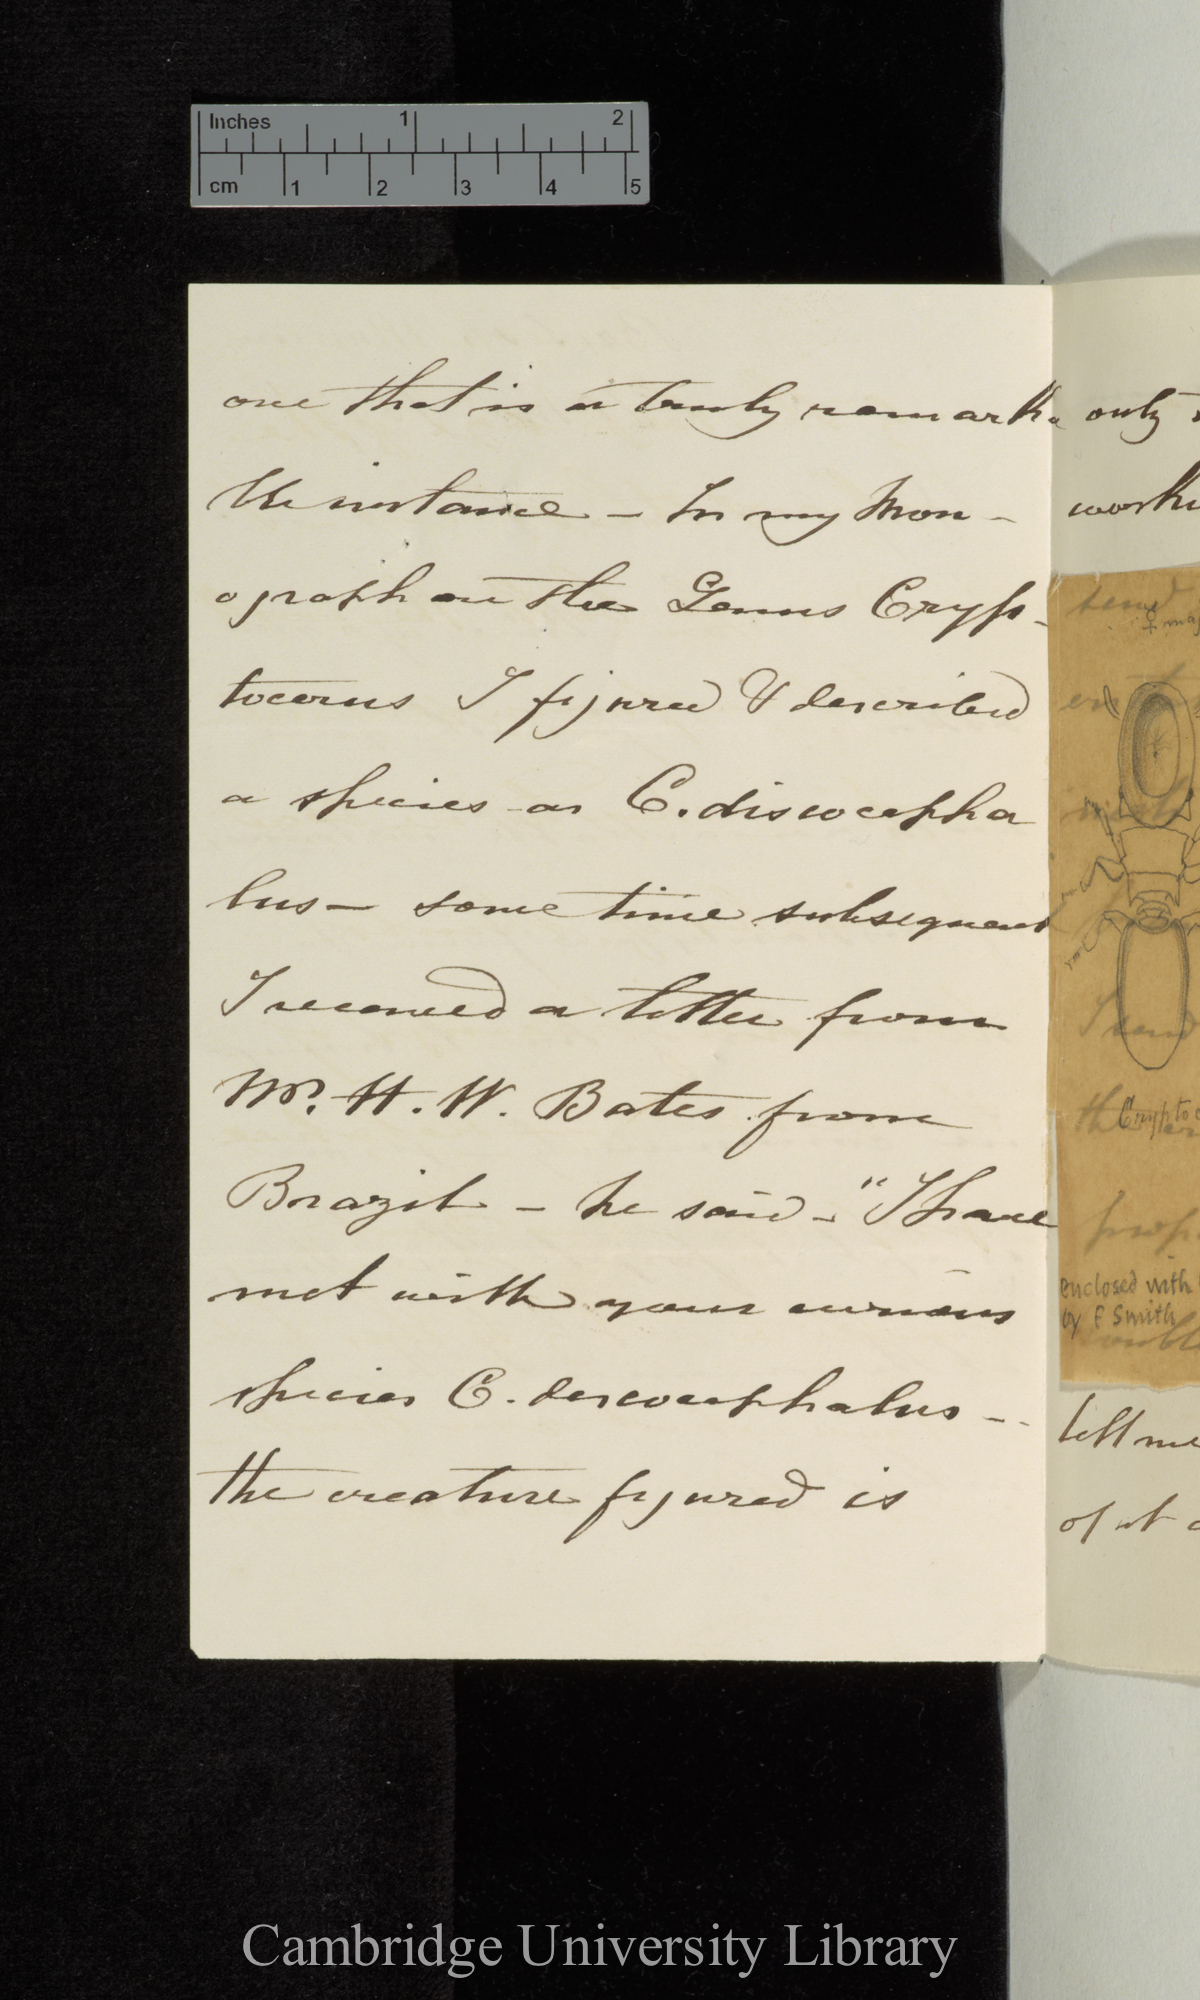 Inches 1 2
cm 1 2 3 4 5
one that is a truly remarka
ble instance – In my Mon-
ograph on the Genus Cryp-
tocerus I figured & described
a species as C. discocepha
lus – some time subsequent
I received a letter from
Mr. H. W. Bates from
Brazil – he said – "I have
met with your curious
species C. discocephalus --
the creature figured is
only
send
♀
I send
the
Crypto
enclosed with
by F Smith
tell me
of it
Cambridge University Library